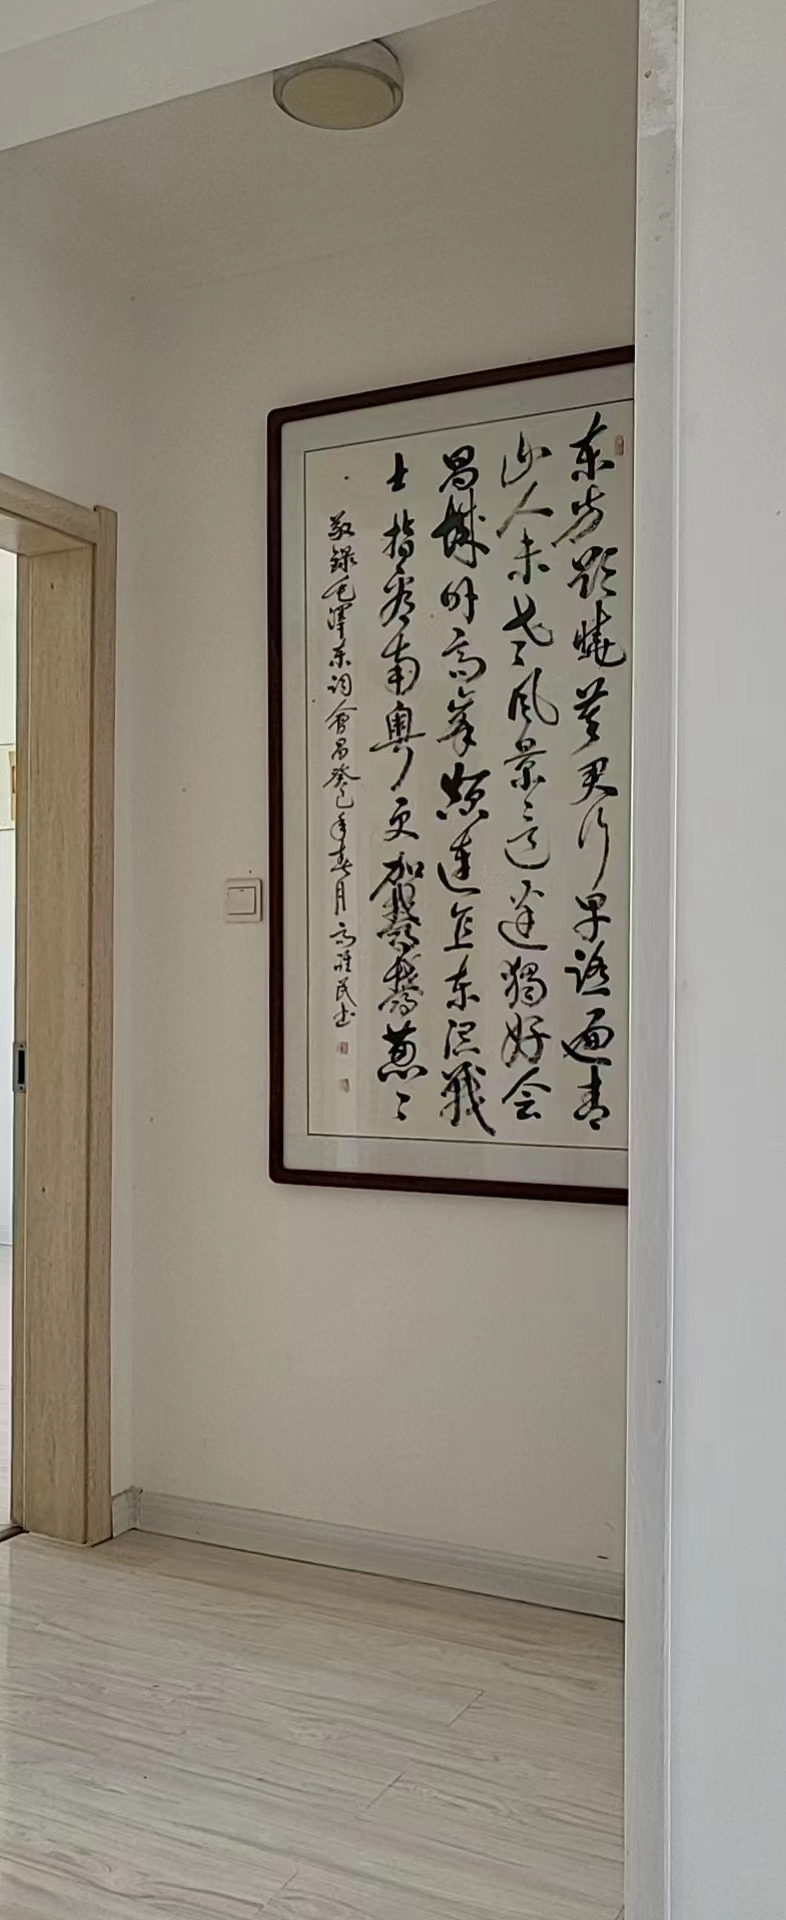 东方欲晓莫君行早踏遍青
山人未老风景这边独好会
昌城外高峰颠连直东溟战
士指看南粤更加鬱鬱葱〻
敬録毛澤东词會昌癸巳年春月高民书